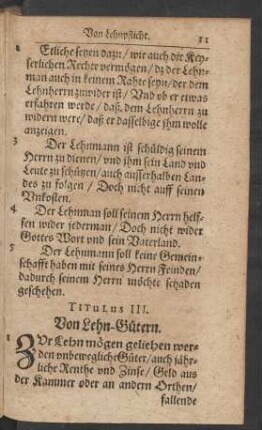 Von Lehnpflicht. 21
2 Etliche setzen dazu / wie auch die Key-
serlichen Rechte vermögen / dz der Lehn-
man auch in keinem Rahte seyn / der dem
Lehnherrn zuwider ist / Vnd ob er etwas
erfahren werde / daß dem Lehnherrn zu
widern were / daß er dasselbige ihm wolle
anzeigen.
3 Der Lehnmann ist schüldig seinem
Herrn zu dienen / vnd ihm sein Land vnd
Leute zu schützen / auch ausserhalben Lan-
des zu folgen / Doch nicht auff seinen
Vnkosten.
4 Der Lehnman soll seinem Herrn helf-
fen wider jederman / Doch nicht wider
Gottes Wort vnd sein Vaterland.
5 Der Lehnmann soll keine Gemein-
schafft haben mit seines Herrn Feinden /
dadurch seinem Herrn möchte schaden
geschehen.
TITULUS III.
Von Lehn-Gütern.
ZVr Lehn mögen geliehen wer-
den vnbewegliche Güter / auch jähr-
liche Renthe vnd Zinse / Geld aus
der Kammer oder an andern Orthen /
fallende